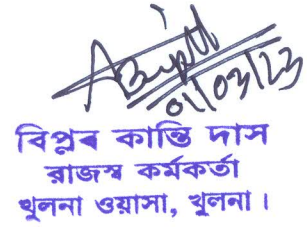 01/03/23
বিপ্লব কান্তি দাস
রাজস্ব কর্মকর্তা
খুলনা ওয়াসা, খুলনা।